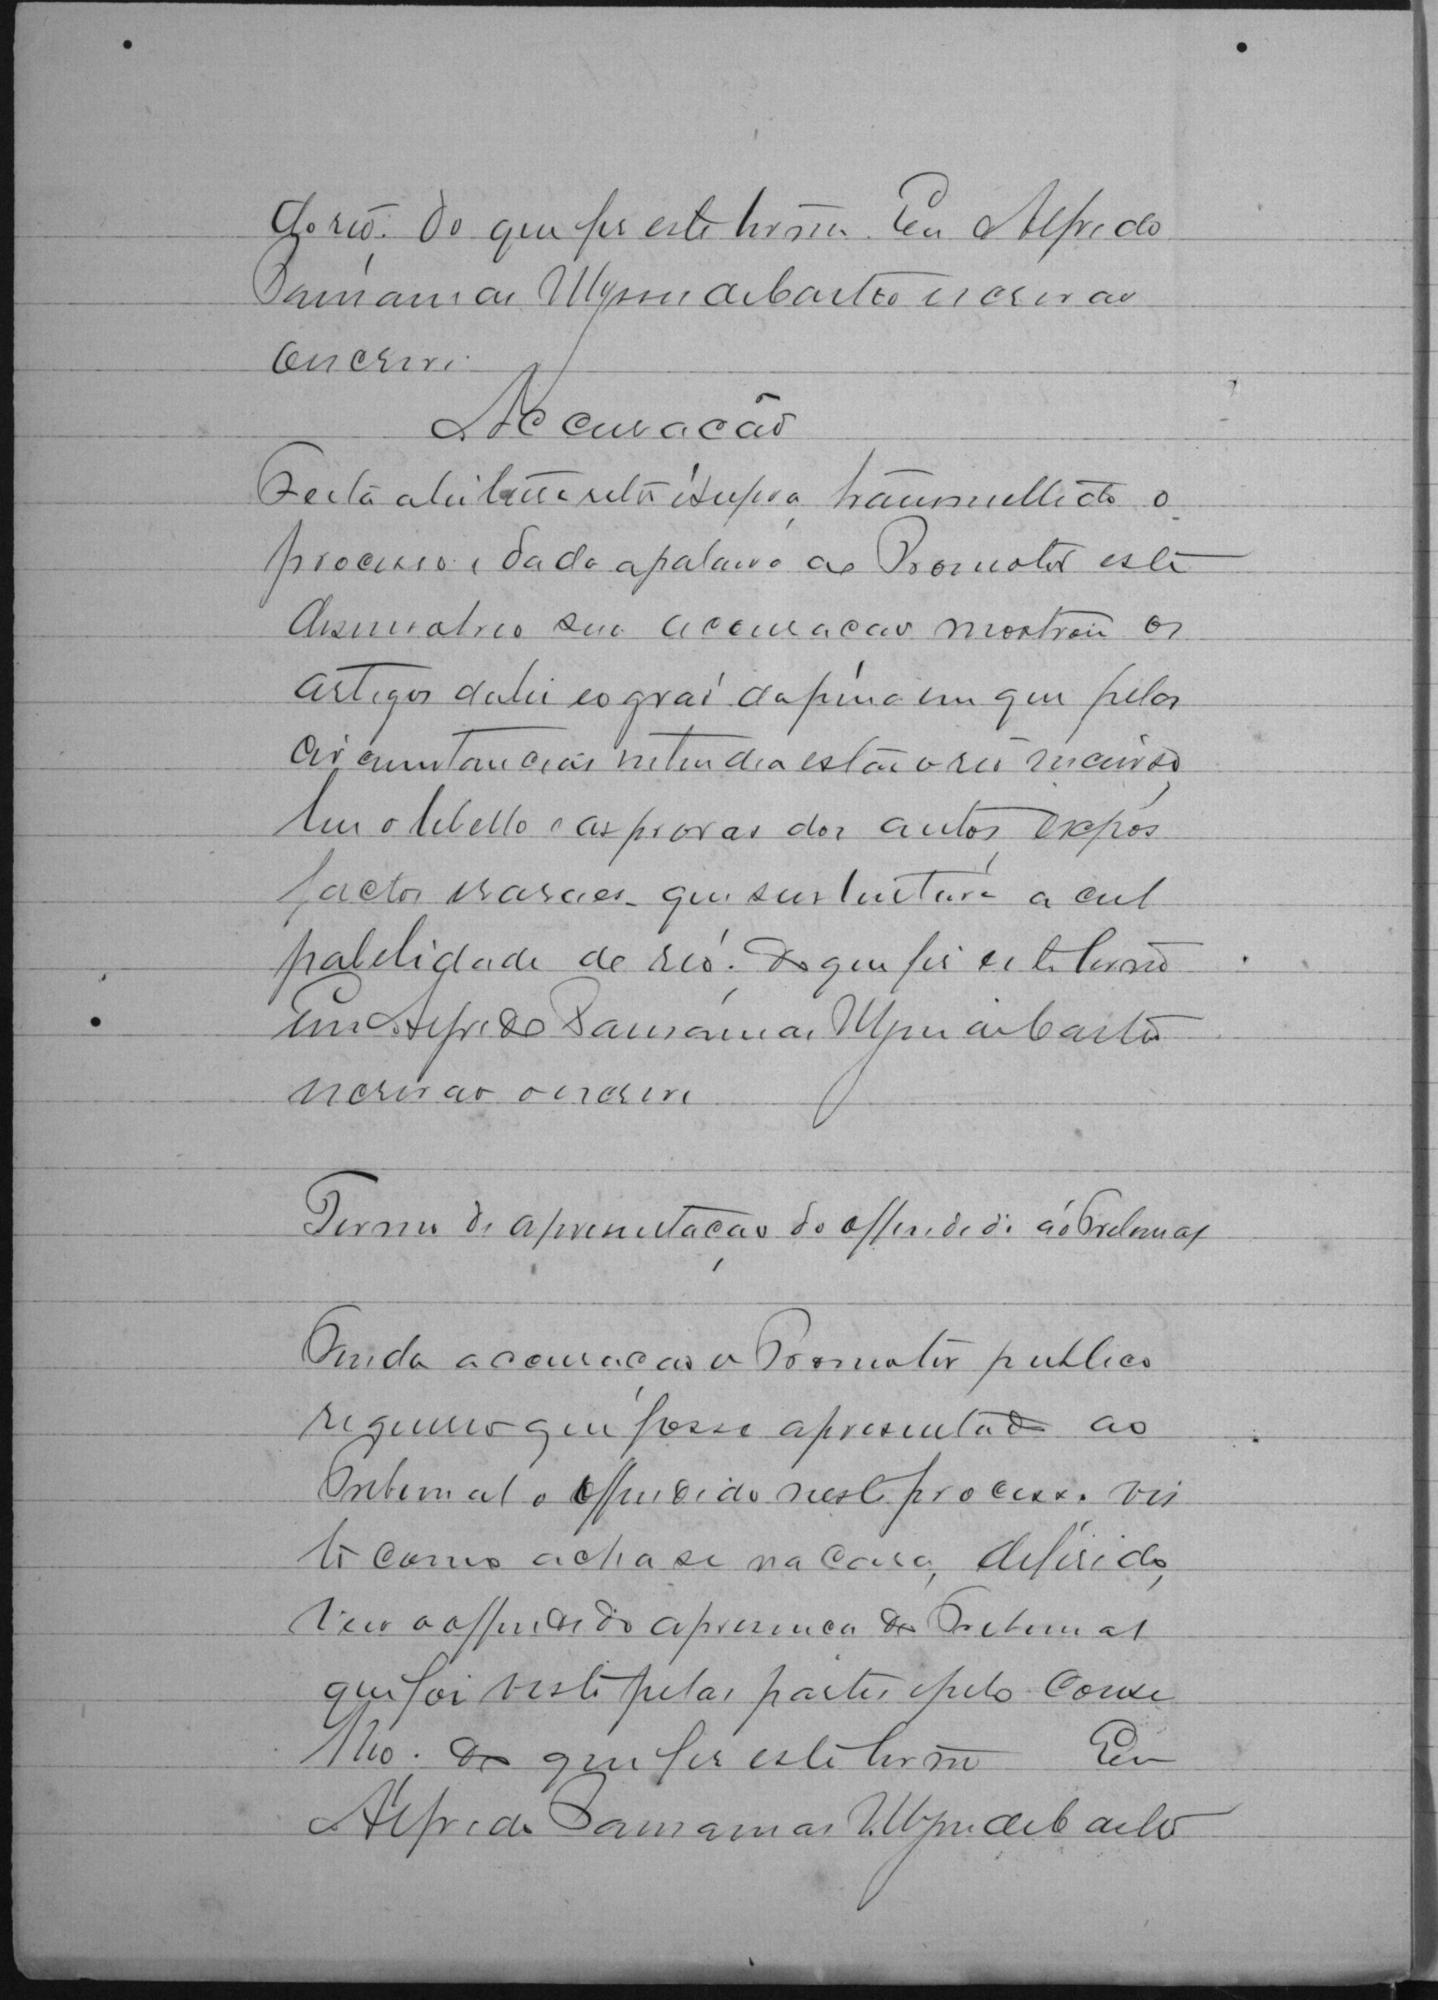 do reo. Do que fis este termo. Eu Alfredo
escrivao
escrevi.
Accusação
Feita a leitura retro e supra, transmettido o
processo e dada a palavra ao Promotor este
desenvolveo sua accusacao mostrou os
artigos da lei e o gráo da pena em que pelas
circumstancias entendia estar o reo incurso,
leu o libello e as provas dos autos, expos
factos e rasoes que sustentava a cul
pabelidade do reo. Do que fis este termo
Eu Alfredo
escrivao o escrevi
Termo de apresentação do offendido áo Tribunal
Finda a accusacao o Promotor publico
requereo que fosse apresentado ao
Tribunal o offendido neste processo vis
to como acha se na casa, deferido,
veio o offendido a presenca do Tribunal
que foi visto pelas partes e pelo Conse
lho. Do que fis este termo Eu
Alfredo